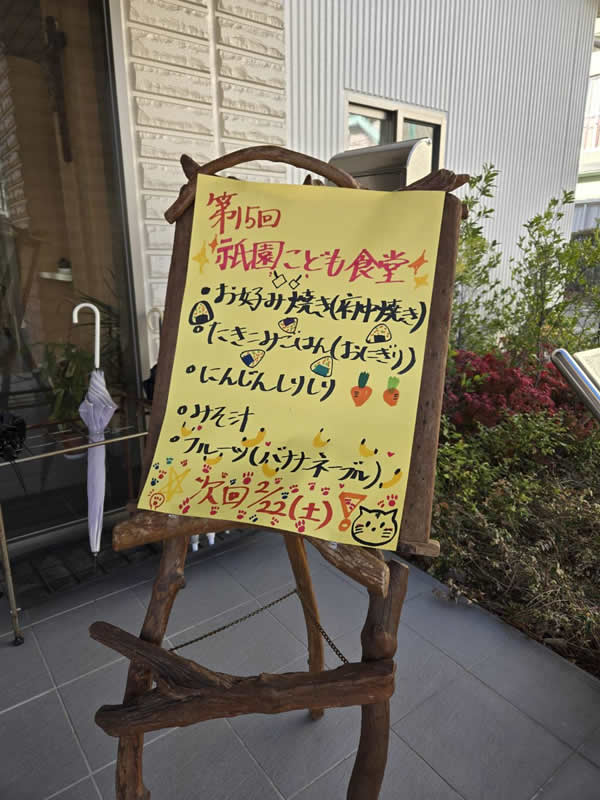 第15回
祇園こども食堂
・お好み焼き(府中焼き)
・たきこみごはん(おにぎり)
・にんじんしりしり
・みそ汁
・フルーツ(バナナ、ネーブル)
次回2/22(土)